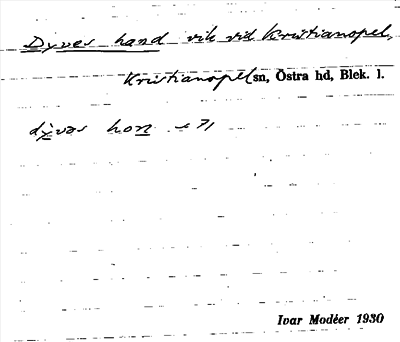 Dyves hand vik vid Kristianopel,
Kristianopel sn, Östra hd, Blek. l.
dyvəs hon
Ivar Modéer 1930